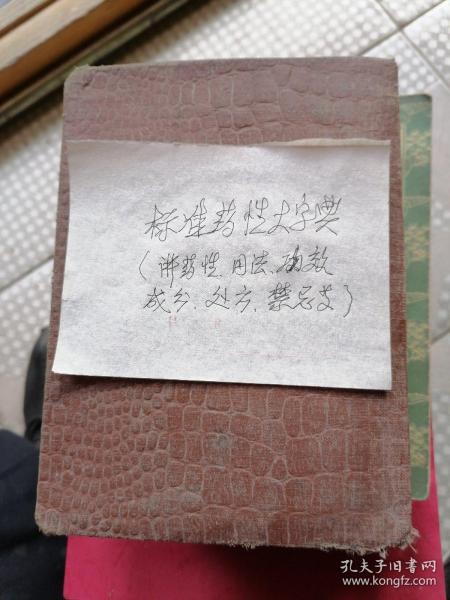 标准药性大字典
（讲药性、用法、功效
成分、处方、禁忌
孔夫子旧书网
www.kongfz.com